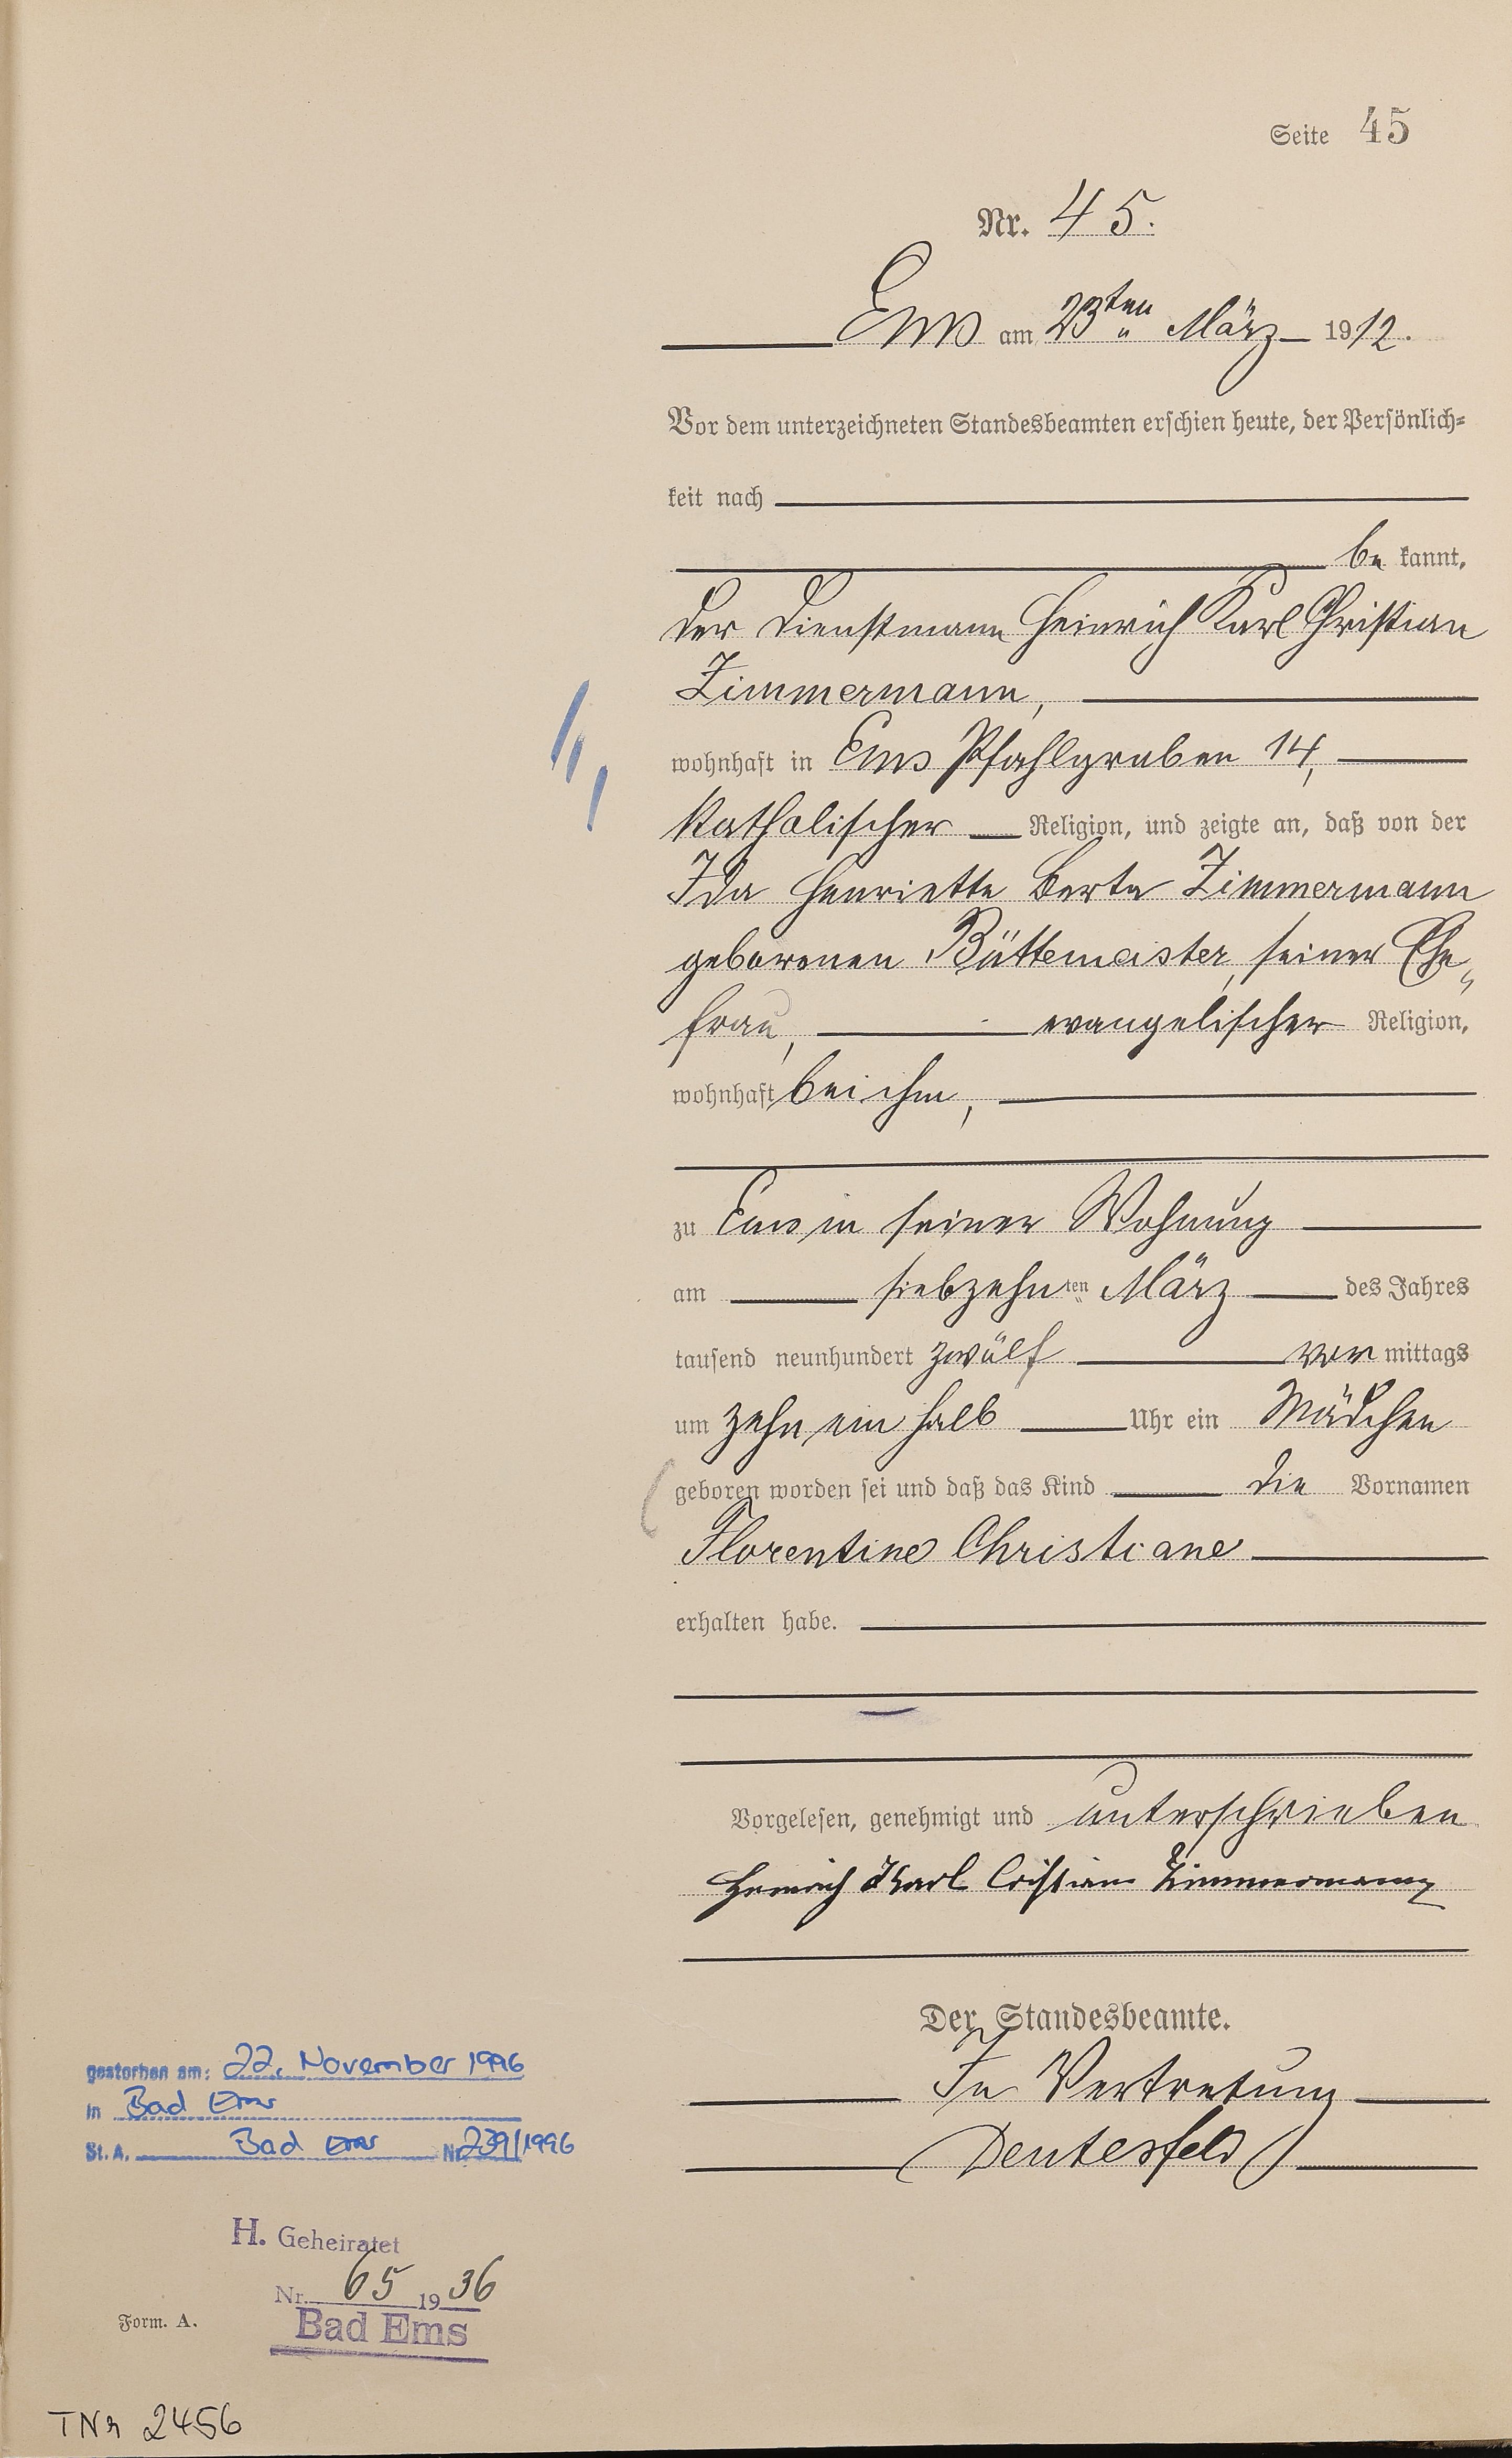 Seite 45
Nr. 45.
Ems am 23ten März 1912.
Vor dem unterzeichneten Standesbeamten erschien heute, der Persönlich=
keit nach
be kannt,
der Dienstmann Heinrich Karl Christian
Zimmermann,
wohnhaft in Ems Pfahlgraben 14,
katholischer Religion, und zeigte an, daß von der
Ida Henriette Berta Zimmermann
geborenen Büttemeister, seiner Ehe„
frau, evangelischer Religion,
wohnhaft bei ihm,
zu Ems in seiner Wohnung
am siebzehnten März des Jahres
tausend neunhundert zwölf vor mittags
um zehn ein halb Uhr ein Mädchen
geboren worden sei und daß das Kind die Vornamen
Florentine Christiane
erhalten habe.
Vorgelesen, genehmigt und unterschrieben
Heinrich Karl Cristian Zimmermann
Der Standesbeamte.
In Vertretung
Deutesfeld
gestorben am: 22. November 1996
in Bad Ems
St. A. Bad Ems Nr. 239/1996
H. Geheiratet
Nr. 65 1936
Bad Ems
Form. A.
TNr 2456